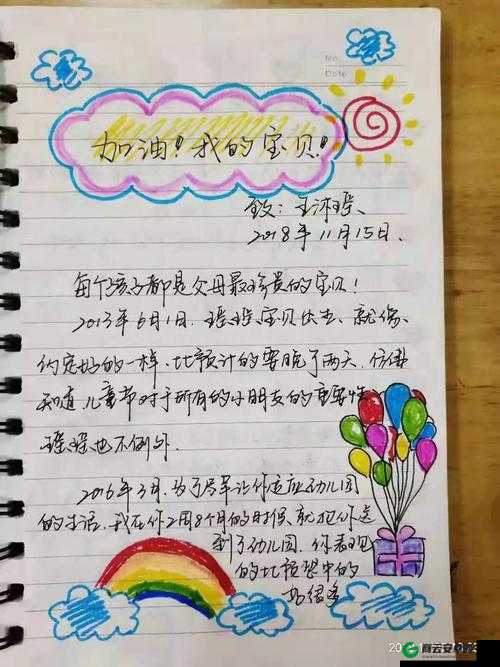 No.
Date
加油！我的宝贝！
致：王沛瑶、
2018年11月15日、
每个孩子都是父母最珍贵的宝贝！
2013年6月1日，瑶瑶宝贝出生，就像
约定好的一样，比预计的要晚了两天，仿佛
知道，儿童节对于所有的小朋友的重要性，
瑶瑶也不例外。
2016年3月，为了尽早让你适应幼儿园
的生活，我在你2周8个月的时候，就把你送
到了幼儿园，你表现
的比预想中的
好很多